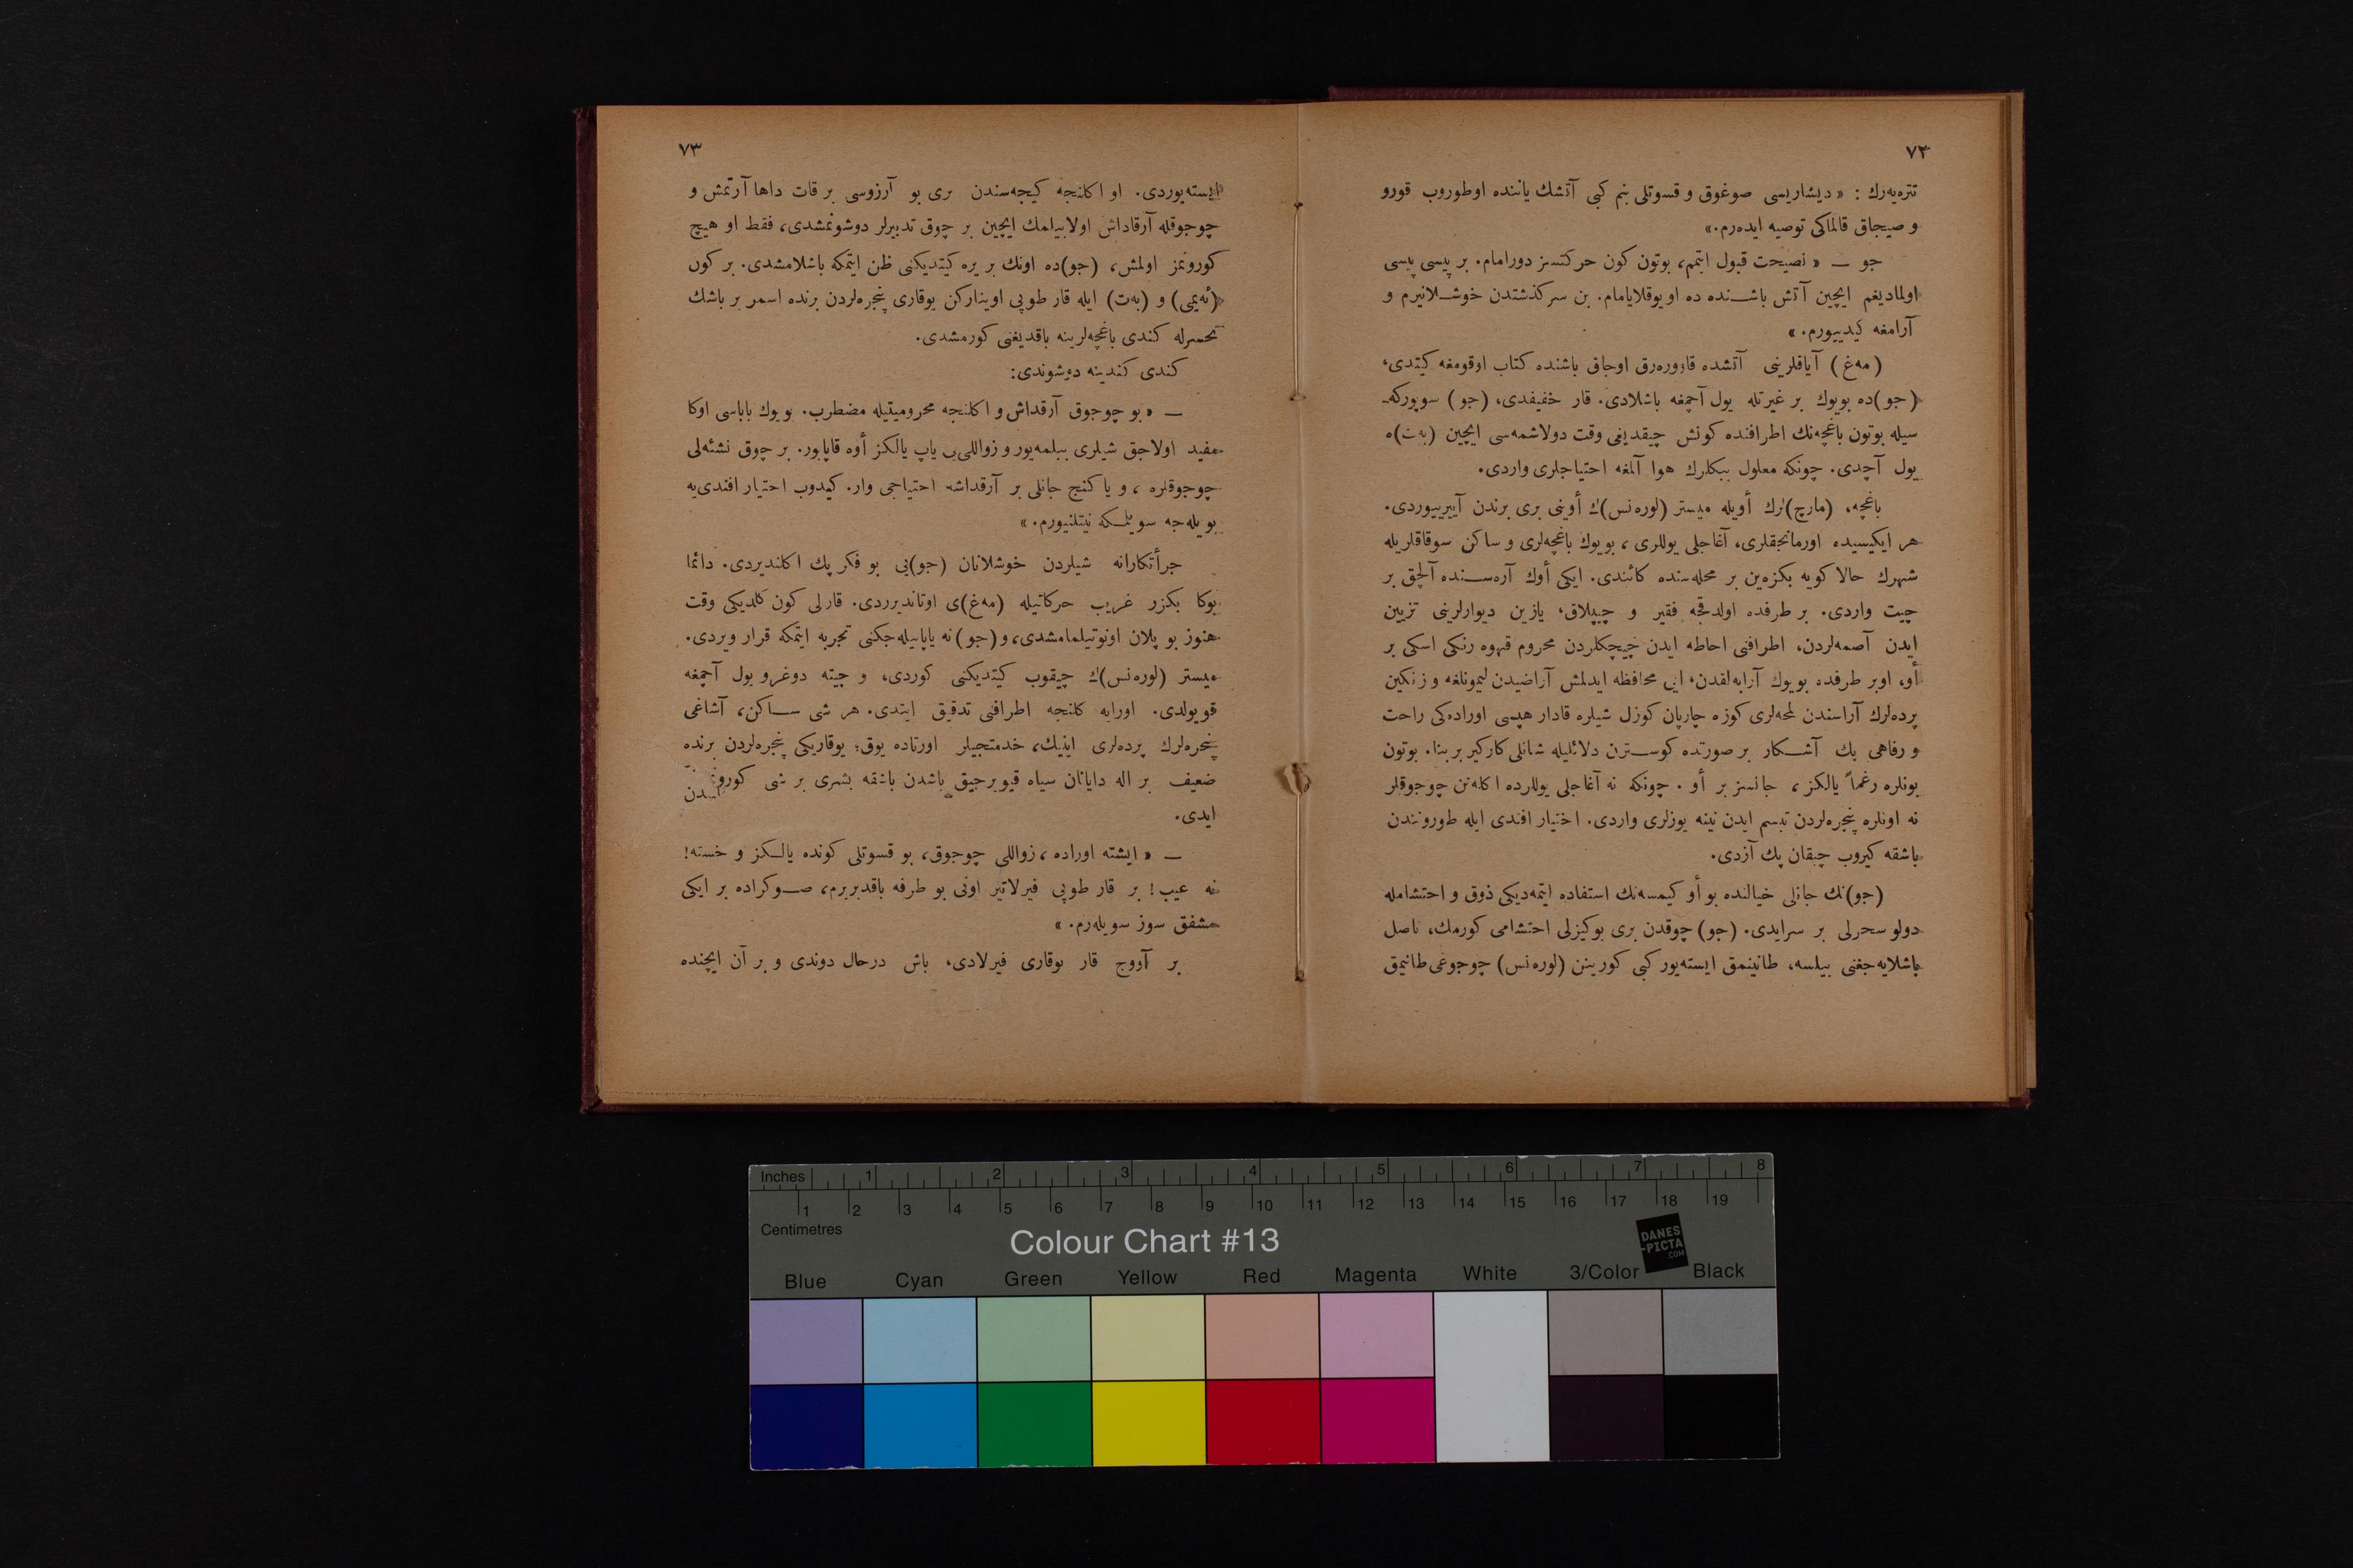 ٧٢
تتره‌يه‌رك : « ديشاريسى صوغوق و قسوتلى بنم كبى آتشك ياننده اوطوروب قورو
و صيجاق قالماكى توصيه ايده‌رم.»
جو — « نصيحت قبول ايتمم، بوتون كون حركتسز دورامام. بر پيسى پيسى
اولماديغم ايچين آتش باشنده ده اويوقلايامام. بن سركذشتدن خوشلانيرم و
آرامغه كيدييورم. »
(مه‌غ) آياقلرينى آتشده قاووره‌رق اوجاق باشنده كتاب اوقومغه كيتدى،
(جو)ده بويوك بر غيرتله يول آچمغه باشلادى. قار خفيفدى، (جو) سوپوركه‌
سيله بوتون باغچه‌نك اطرافنده كونش چيقديغى وقت دولاشمه‌سى ايچين (به‌ت)ه
يول آچدى. چونكه معلول ببكلرك هوا آلمغه احتياجلرى واردى.
باغچه، (مارچ)لرك أويله ميستر (لوره‌نس)ك أوينى برى برندن آييرييوردى.
هر ايكيسيده اورمانجقلرى، آغاجلى يوللرى ، بويوك باغچه‌لرى و ساكن سوقاقلريله
شهرك حالا كويه بكزه‌ين بر محله‌سنده كائندى. ايكى أوك آره‌سنده آلچق بر
چيت واردى. بر طرفده اولدقجه فقير و چيپلاق، يازين ديوارلرينى تزيين
ايدن آصمه‌لردن، اطرافنى احاطه ايدن چيچكلردن محروم قهوه رنكى اسكى بر
أو، اوبر طرفده بويوك آرابه‌لقدن، ايى محافظه ايدلمش آراضيدن ليمونلغه و زنكين
پرده‌لرك آراسندن لمحه‌لرى كوزه چارپان كوزل شيلره قادار هپسى اوراده‌كى راحت
و رفاهى پك آشكار بر صورتده كوسترن دلائليله شانلى كاركير بر بنا. بوتون
بونلره رغماً يالكز ، جانسز بر أو . چونكه نه آغاجلى يوللرده اكله‌نن چوجوقلر
نه اونلره پنجره‌لردن تبسم ايدن نينه يوزلرى واردى. اختيار افندى ايله طورونندن
باشقه كيروب چيقان پك آزدى.
(جو)نك جانلى خيالنده بو أو كيمسه‌نك استفاده ايتمه‌ديكى ذوق و احتشامله
دولو سحرلى بر سرايدى. (جو) چوقدن برى بو كيزلى احتشامى كورمك، ناصل
باشلايه‌جغنى بيلسه، طانينمق ايسته‌يور كبى كورينن (لوره‌نس) چوجوغى طانيمق
٧٣
ايسته‌يوردى. او اكلنجه كيجه‌سندن برى بو آرزوسى بر قات داها آرتمش و
چوجوقله آرقاداش اولابيلمك ايچين بر چوق تدبيرلر دوشونمشدى، فقط او هيچ
كورونمز اولمش، (جو)ده اونك بر يره كيتديكنى ظن ايتمكه باشلامشدى. بر كون
(ئه‌يمى) و (به‌ت) ايله قار طوپى اويناركن يوقارى پنجره‌لردن برنده اسمر بر باشك
تحسرله كندى باغچه‌لرينه باقديغنى كورمشدى.
كندى كندينه دوشوندى:
— « بو چوجوق آرقداش و اكلنجه محروميتيله مضطرب. بويوك باباسى اوكا
مفيد اولاجق شيلرى بيلمه‌يور و زواللى‌يى ياپ يالكز أوه قاپايور. بر چوق نشئه‌لى
چوجوقلره ، و يا كنج جانلى بر آرقداشه احتياجى وار. كيدوب اختيار افندى‌يه
بويله‌جه سويلمكه نيتلنيورم. »
جرأتكارانه شيلردن خوشلانان (جو)يى بو فكر پك اكلنديردى. دائما
بوكا بكزر غريب حركاتيله (مه‌غ)ى اوتانديرردى. قارلى كون كلديكى وقت
هنوز بو پلان اونوتيلمامشدى، و (جو) نه ياپابيله‌جكنى تجربه ايتمكه قرار ويردى.
ميستر (لوره‌نس)ك چيقوب كيتديكنى كوردى، و چيته دوغرو يول آچمغه
قويولدى. اورايه كلنجه اطرافنى تدقيق ايتدى. هر شى ساكن، آشاغى
پنجره‌لرك پرده‌لرى اينيك، خدمتجيلر اورتاده يوق؛ يوقاريكى پنجره‌لردن برنده
ضعيف بر اله دايانان سياه قيويرجيق باشدن باشقه بشرى بر شى
ايدى.
— « ايشته اوراده ، زواللى چوجوق، بو قسوتلى كونده يالكز و خسته!
نه عيب! بر قار طوپى فيرلاتير اونى بو طرفه باقديريرم، صوكراده بر ايكى
مشفق سوز سويله‌رم. »
بر آووج قار يوقارى فيرلادى، باش درحال دوندى و بر آن ايچنده
Inches 1 2 3 4 5 6 7 8
1 2 3 4 5 6 7 8 9 10 11 12 13 14 15 16 17 18 19
Centimetres
Colour Chart #13
DANES
-PICTA
.COM
Blue Cyan Green Yellow Red Magenta White 3/Color Black